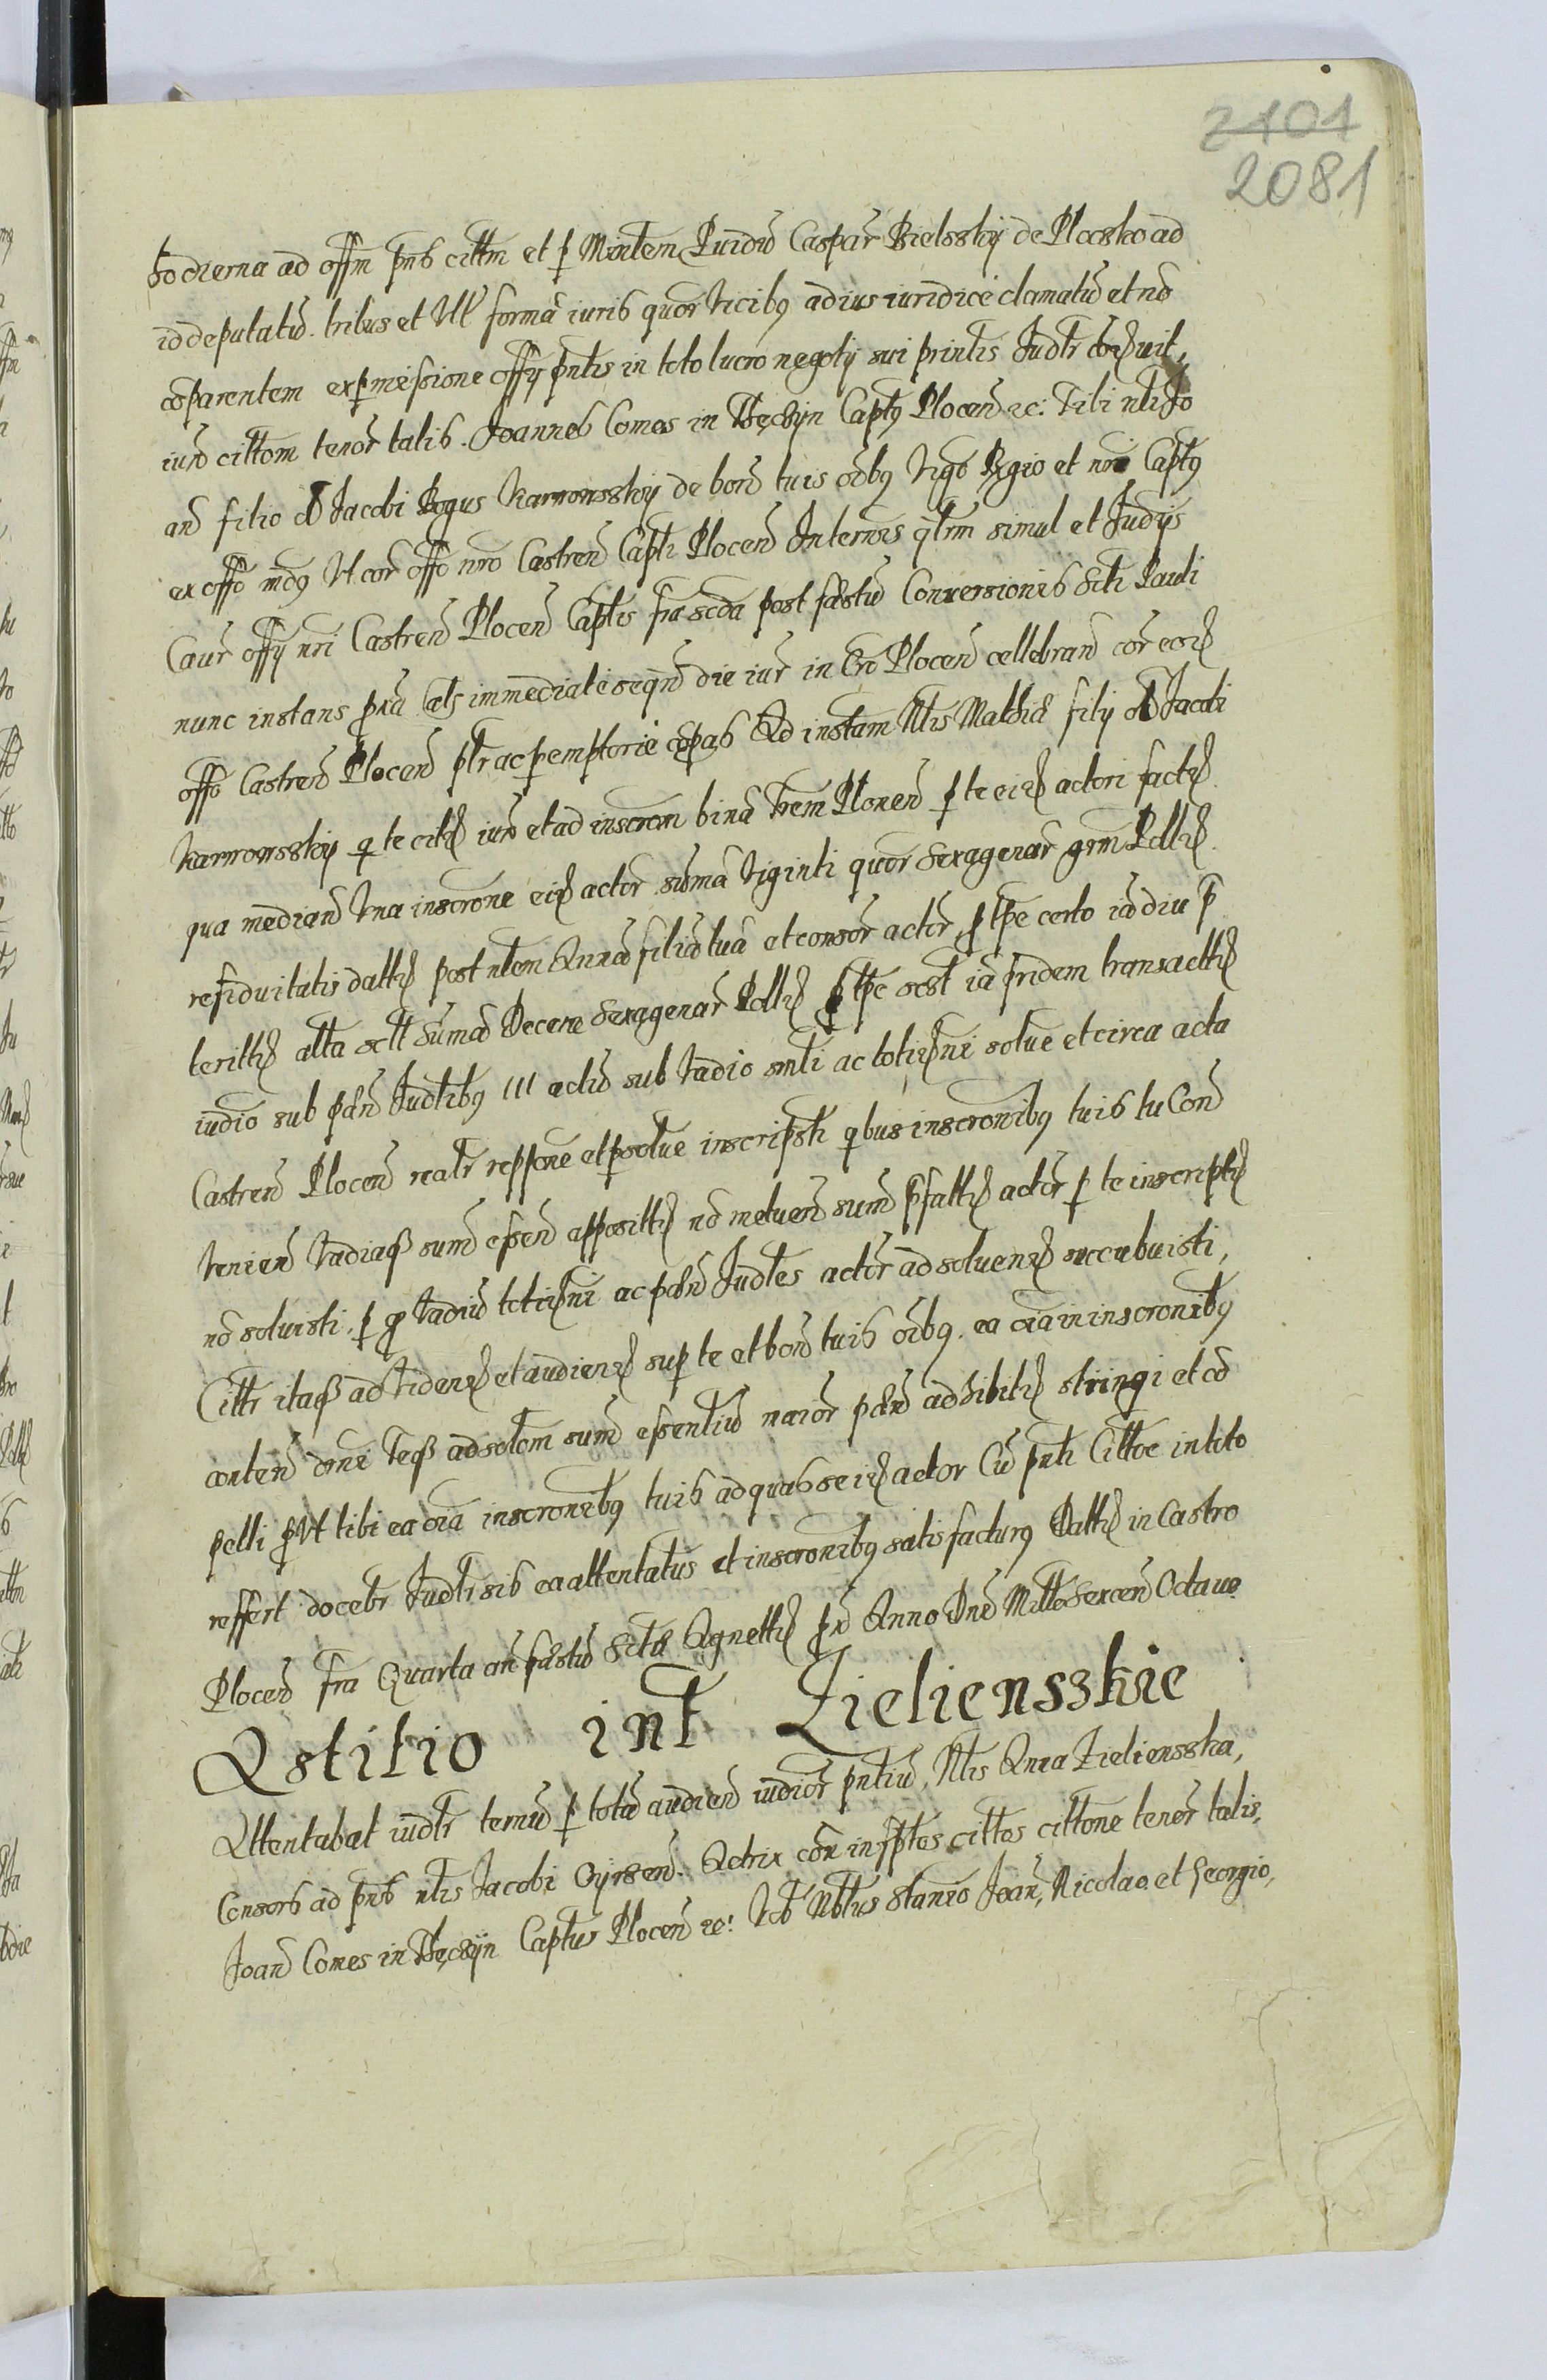 2101
2081
hodierna ad offm pns cittm et p Minlem Puidu Caspar Bielsskij de Plocsko ad
id deputatu. tribus et Vll forma iuris quor vicibq ad ius iuridice clamatu et no
coparentem ex pmissione offij pntis in toto lucro negotij sui printis Judtr
iuxo cittom tenor talis. Joannes Comes in Thęczijn Captq Plocen ec: Tibi nli Jo
an filio ol Jacobi Bogus Karnowsskij de bon tuis oibq Vigo Rgio et nro Captq
ex offo mdq Vt cor offo nro Castren Capti Plocen Internis qlrm simul et Judijs
Caur offij nri Castren Plocen Captis fra scda post festu Conversionis Scti Pauli
nunc instans pxa als immediate seqn die iur in Cro Plocen cellebran cor eod
offo Castren Plocen plr ac pemptorie copas Ad instam Nlis Mathie filij ol Jacobi
Karnowsskij q te citt iuxo et ad inscrom bina trem Plonen p te eid actori fact
qua median Vna inscrone eid actor suma Viginti quor Sexagenar grm Pll
residuitatis datt post nlem Anna filia tua et consor actor, p tpe certo iadiu p
teritt alta sctt suma Decem sexagenar Poll p tpe sctt ia pridem transactt
iudio sub pen Judtibq III actu sub Vadio smli ac totidni solue et circa acta
Castren Plocen realr reppone et psolue inscripsti qbus inscronibq tuis tu Con
Venien Vadiaq sum essen apposit no metuen sum pfatt actor p te inscript
no soluisti. p q Vadiu totidni ac pen Judtes actor ad soluend succubuisti,
Cittr itaq ad Vidend et audiend sup te et bon tuis oibq. ea oia in inscronibq
conten omi Teq ad solom sum essentiu maior pen adhibitt stringi et co
pelli pVt tibi ea oia inscronibq tuis ad quas se id actor Cu pnti Cittoe in toto
reffert docebr Judtr sis ea attentatus et inscronibq satisfacturq Datt in Castro
Plocen fra Quarta an festu Scta Agnett px Anno Dni Mill Sexcen Octauo
Astitio int Zielienszkie
Attentabat iudtr ternu p tota audien iudior pntiu, Nlis Anna Zielienska,
Consors ad pns nlis Jacobi Gijrsen. Actrix con insptos cittos cittone tenor talis,
Joan Comes in Thęczijn Captus Plocen ec: Vob Nblius Stanio Joan, Nicolao et Georgio,